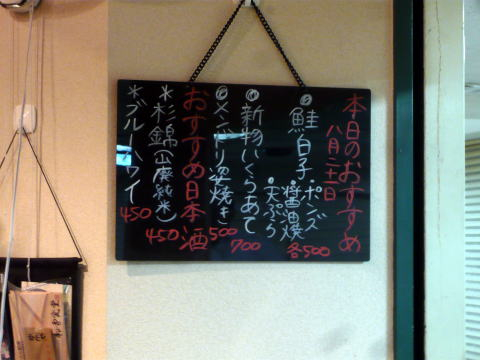 本日のおすすめ
八月二十一日
◎鮭白子・ポンズ
・醤油焼
・天ぷら
各500
◎新物いくらあて
700
◎メンドリ姿焼き
500
おすすめ日本酒
*杉錦(山廃純米)
450
*ブルーハワイ
450